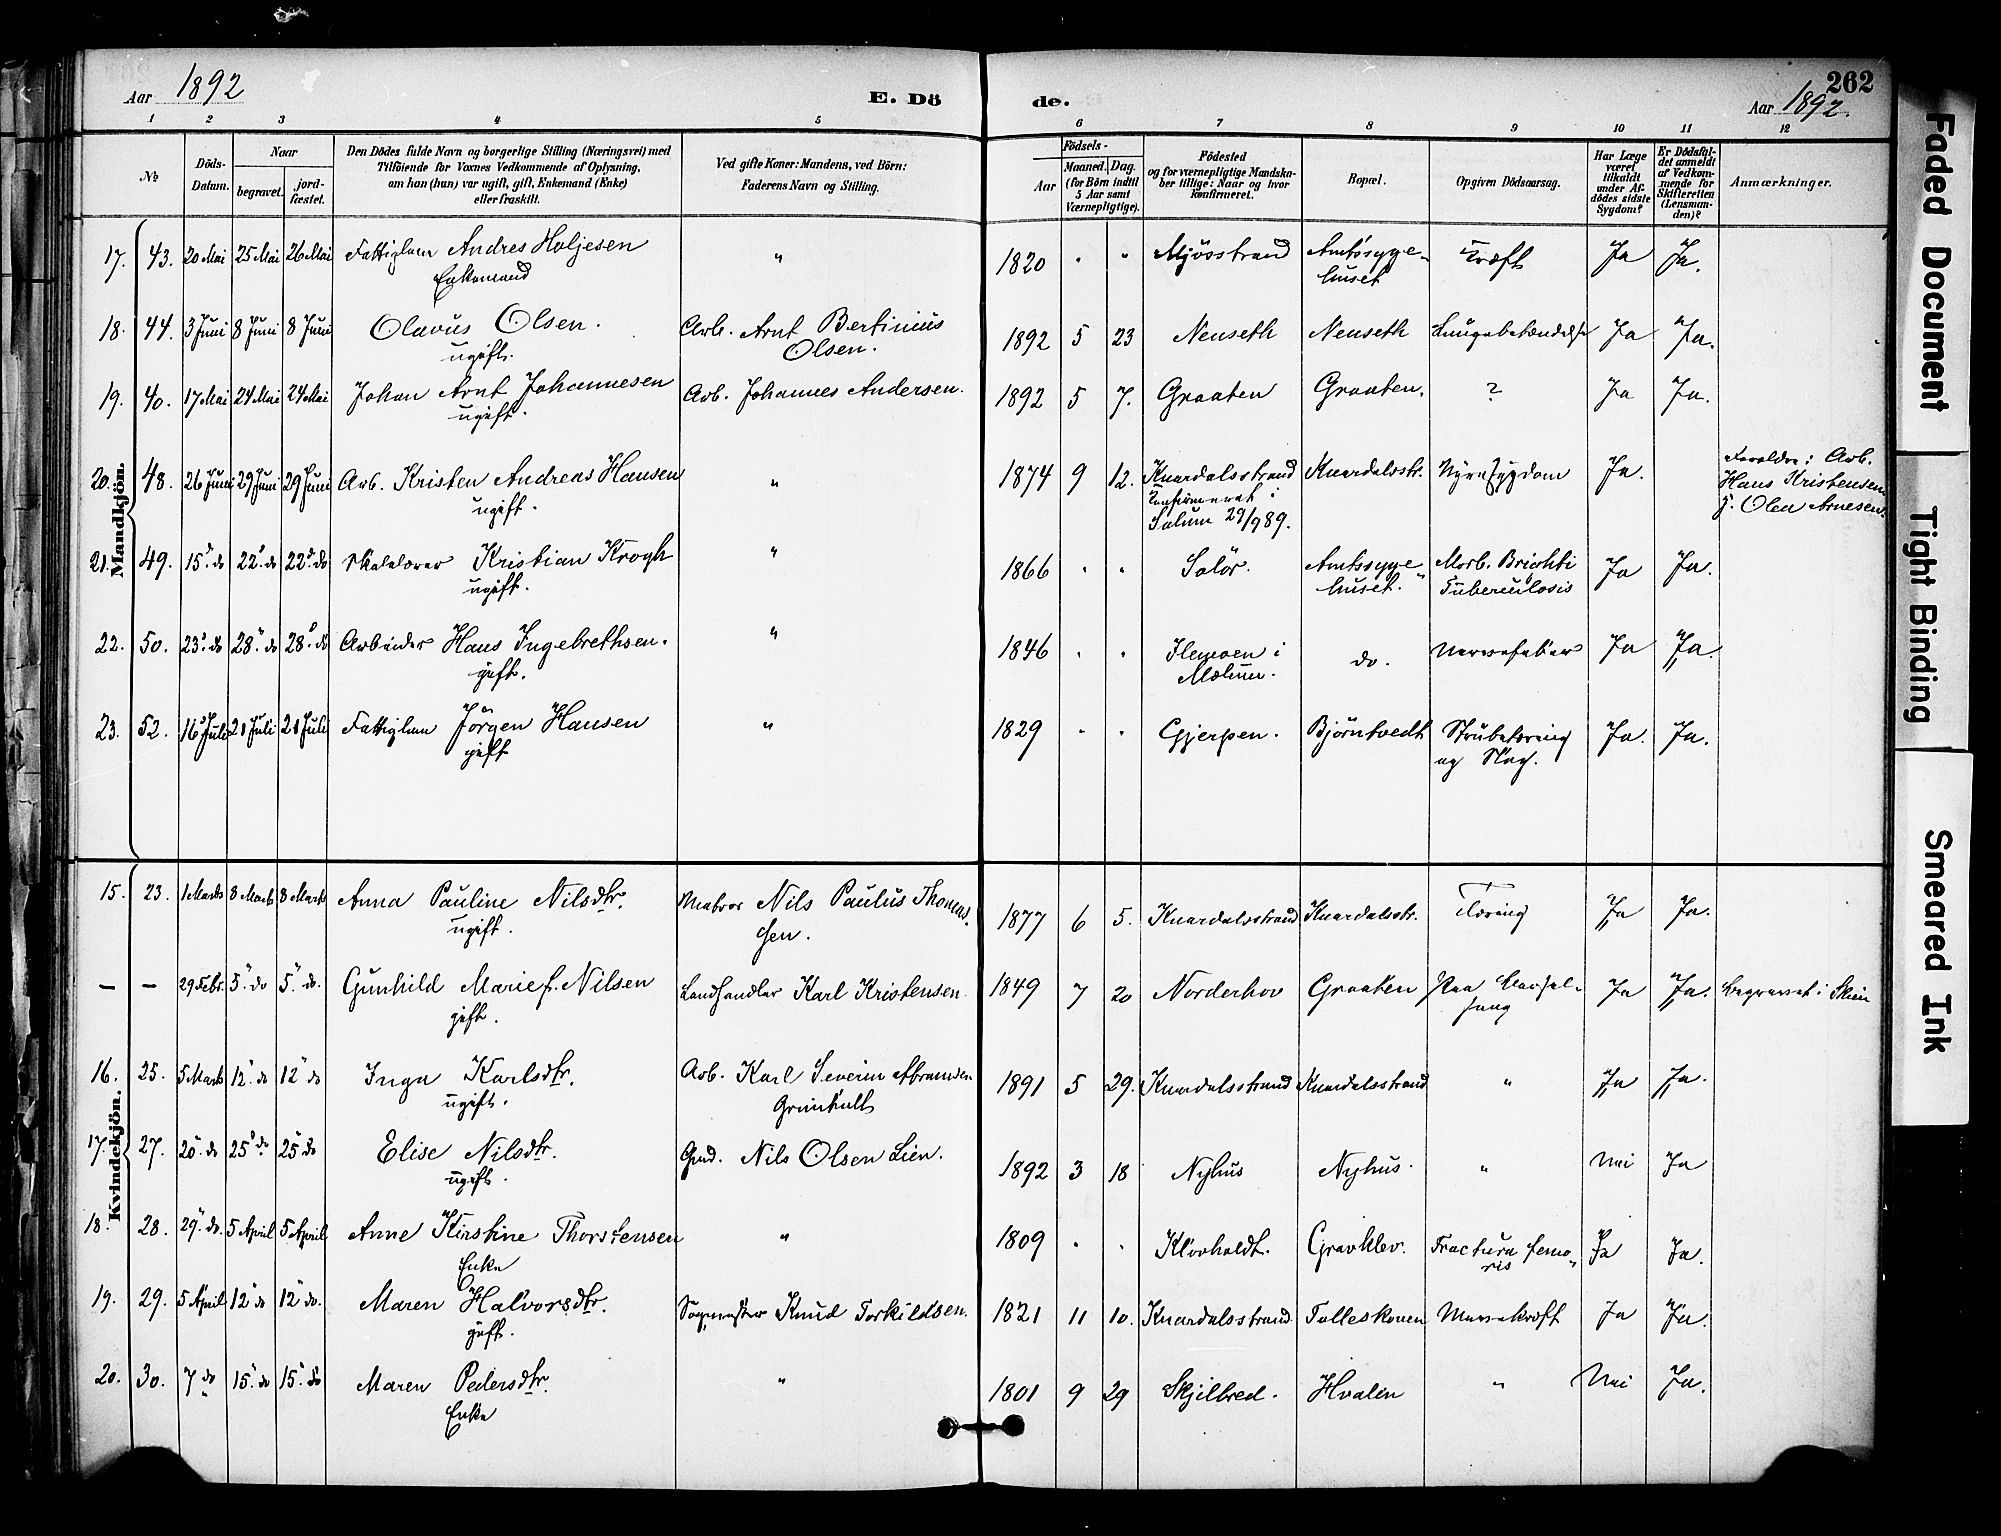 Aar 1892
E. Dö
de.
262
Aar 1892.
1 2 3 4 5 6 7 8 9 10 11 12
No
Döds-
Datum.
Naar
begravet.
jord-
fæstet.
Den Dödes fulde Navn og borgerlige Stilling (Næringsvei) med
Tilföiende for Voxnes Vedkommende af Oplysning,
om han (hun) var ugift, gift, Enkemand (Enke)
eller fraskilt.
Ved gifte Koner: Mandens, ved Börn:
Faderens Navn og Stilling.
Födsels-
Aar
Maaned. Dag.
(for Börn indtil
5 Aar samt
Værnepligtige).
Födested
og for værnepligtige Mandska-
ber tillige: Naar og hvor
konfirmeret.
Bopæl.
Opgiven Dödsaarsag.
Har Læge
været
tilkaldt
under Af-
dödes sidste
Sygdom?
Er Dödsfal-
det anmeldt
af Vedkom-
mende for
Skifteretten
(Lensman-
den)?
Anmærkninger.
Mandkjön.
17. 43. 20 Mai 25 Mai 26 Mai Fattiglem Andres Holjesen " 1820 " " Mjösstrand Amtssyge- Kræft Ja Ja.
Enkemand huset
18. 44. 3 Juni 8 Juni 8 Juni Olavus Olsen. Arb. Arnt Bertinius 1892 5 23 Nenseth Nenseth Lungebetændelse Ja Ja.
ugift. Olsen.
19. 40. 17 Mai 24 Mai 24 Mai Johan Arnt Johannesen Arb. Johannes Andersen. 1892 5 7. Graaten Graaten. ? Ja Ja.
ugift.
20. 48. 26 Juni 29 Juni 29 Juni Arb. Kristen Andreas Hansen " 1874 9 12. Knardalsstrand Knardalsstr. Nyresygdom Ja. Forældre: Arb.
ugift. Konfirmeret i Hans Kristensen
Solum 29/9 89. g. Olea Arnesen.
21. 49. 15 do 22. do 22. do Kristian Krogh " 1866 " " Solör. Amtssyge Morb. Brichti Ja Ja.
ugift. huset. Tuberculosis
22. 50. 23. do 28. do 28. do Arbeider Hans Ingebrethsen. " 1846 " " i do. Nervefeber Ja Ja.
gift. Mælum.
23. 52. 16 Juli 21 Juli 21 Juli Fattiglem Jörgen Hansen " 1829 " " Gjerpen. Bjørntvedt Strubetæring Ja. Ja.
gift og Slag.
Kvindekjön.
15. 23. 1 Marts 8 Marts 8 Marts Anna Pauline Nilsdtr. Matros Nils Paulus Thomas- 1877 6 5. Knardalsstrand Knardalsstr. Tæring Ja Ja.
ugift. sen.
– – 29 Febr. 5. do 5. do. Gunhild Marie f. Nilsen Landhandler Karl Kristensen 1849 7 20 Norderhov Graaten Paa Barsel- Ja Ja. begravet i Skien
gift. seng
16. 25. 5 Marts 12. do 12 do Inga Karlsdtr. Arb. Karl Severin Abramsen 1891 5 29. Knardalsstrand Knardalsstrand " Ja Ja.
ugift. Grinihult
17. 27. 20. do 25 do 25 do Elise Nilsdtr. Gmd. Nils Olsen Lien. 1892 3 18 Nyhus Nyhus. " Nei Ja
ugift.
18. 28. 29. do. 5 April 5 April Anne Kirstine Thorstensen " 1809 " " Klovholdt. Gravklev. Fractura femo- Ja Ja.
Enke ris
19. 29. 5 April 12 do 12 do. Maren Halvorsdtr. Sagmester Knud Torkildsen. 1821 11 10. Knardalsstrand Tolleskoven Mavekræft Ja Ja.
gift.
20. 30. 7 do 15. do 15. do Maren Pedersdtr. " 1801 9 29 Skjilbred. Hvalen " Nei Ja.
Enke
Faded Document
Tight Binding
Smeared Ink